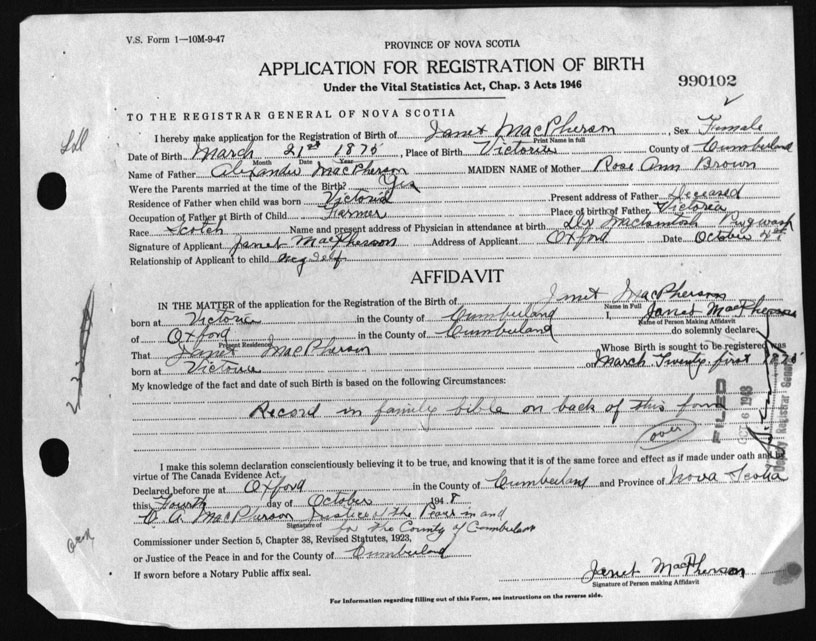 V.S. Form 1—10M-9-47
PROVINCE OF NOVA SCOTIA
APPLICATION FOR REGISTRATION OF BIRTH
Under the Vital Statistics Act, Chap. 3 Acts 1946
990102
TO THE REGISTRAR GENERAL OF NOVA SCOTIA
I hereby make application for the Registration of Birth of Janet MacPherson, Sex Female
Print Name in full
Date of Birth March 21st 1875, Place of Birth Victoria County of Cumberland
Month Date Year
Name of Father Alexander MacPherson MAIDEN NAME of Mother Rose Ann Brown
Were the Parents married at the time of the Birth? Yes
Residence of Father when child was born Victoria Present address of Father Deceased
Occupation of Father at Birth of Child Farmer Place of birth of Father Victoria
Race Scotch Name and present address of Physician in attendance at birth Macintosh Pugwash
Signature of Applicant Janet MacPherson Address of Applicant Oxford Date October 4th
Relationship of Applicant to child myself
AFFIDAVIT
IN THE MATTER of the application for the Registration of the Birth of Janet MacPherson
Name in Full
born at Victoria in the County of Cumberland I, Janet MacPherson
Name of Person Making Affidavit
of Oxford in the County of Cumberland do solemnly declare:
Present Residence
That Janet MacPherson Whose Birth is sought to be registered was
born at Victoria on March Twenty first 1875
My knowledge of the fact and date of such Birth is based on the following Circumstances:
Record in family bible on back of this form
(over)
FILED
6 1948
Deputy Registrar General
I make this solemn declaration conscientiously believing it to be true, and knowing that it is of the same force and effect as if made under oath and by
virtue of The Canada Evidence Act.
Declared before me at Oxford in the County of Cumberland and Province of Nova Scotia
this Fourth day of October 1948
O. A. MacPherson Justice of the Peace in and
Signature of
for the County of Cumberland
Commissioner under Section 5, Chapter 38, Revised Statutes, 1923,
or Justice of the Peace in and for the County of Cumberland
If sworn before a Notary Public affix seal.
Janet MacPherson
Signature of Person making Affidavit
For Information regarding filling out of this Form, see instructions on the reverse side.